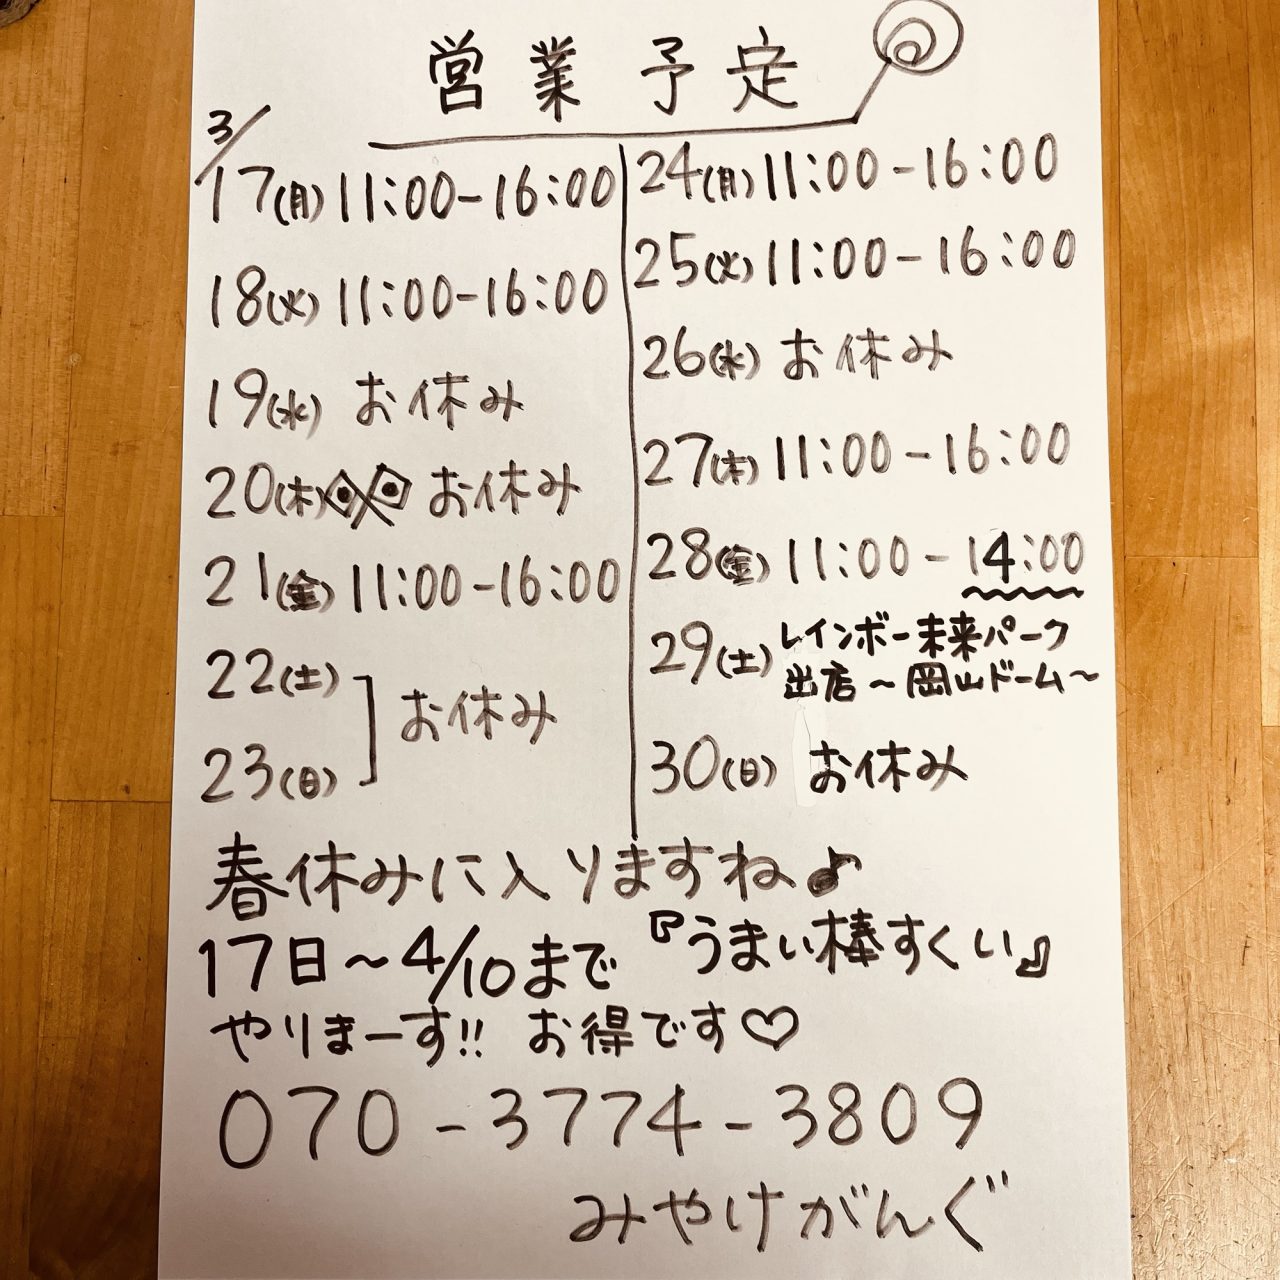 営業予定
3/
17(月) 11:00-16:00
18(火) 11:00-16:00
19(水) お休み
20(木) お休み
21(金) 11:00-16:00
22(土)
23(日)
お休み
24(月) 11:00-16:00
25(火) 11:00-16:00
26(水) お休み
27(木) 11:00-16:00
28(金) 11:00-14:00
29(土) レインボー未来パーク
出店〜岡山ドーム〜
30(日) お休み
春休みに入りますね♪
17日〜4/10まで『うまい棒すくい』
やりまーす!! お得です♡
070-3774-3809
みやけがんぐ